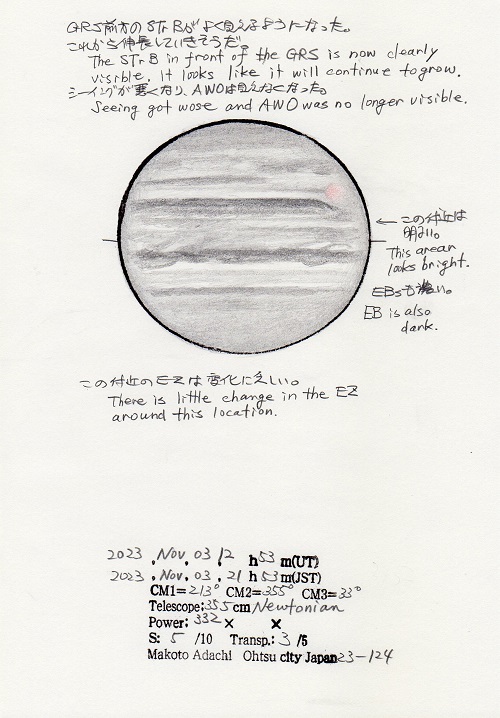 GRS前方のSTrBがよく見えるようになった。
これから伸長していきそうだ。
The STrB in front of the GRS is now clearly
visible. It looks like it will continue to grow.
シーイングが悪くなり、AWOは見えなくなった。
Seeing got wose and AWO was no longer visible.
← この付近は
明るい。
This arear
looks bright.
EBsも濃い。
EB is also
dark.
この付近のEZは変化に乏しい。
There is little change in the EZ
around this location.
2023 . Nov. 03 . 12 h 53 m(UT)
2023 . Nov. 03 . 21 h 53 m(JST)
CM1= 213° CM2= 355° CM3= 33°
Telescope: 355 cm Newtonian
Power: 332 × ×
S: 5 /10 Transp.: 3 /5
Makoto Adachi Ohtsu city Japan 23-124